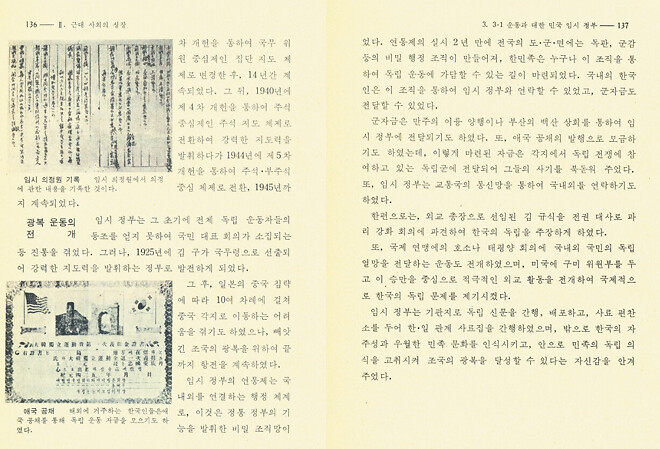 136 — Ⅱ. 근대 사회의 성장
차 개헌을 통하여 국무 위
원 중심제인 집단 지도 체
제로 변경한 후, 14년간 계
속되었다. 그 뒤, 1940년에
제 4차 개헌을 통하여 주석
중심제인 주석 지도 체제로
전환하여 강력한 지도력을
발휘하다가 1944년에 제 5차
개헌을 통하여 주석·부주석
중심 체제로 전환, 1945년까
지 계속되었다.
임시 의정원 기록 임시 의정원에서 의정
에 관한 내용을 기록한 것이다.
광복 운동의
전 개
임시 정부는 그 초기에 전체 독립 운동자들의
동조를 얻지 못하여 국민 대표 회의가 소집되는
등 진통을 겪었다. 그러나, 1925년에 김 구가 국무령으로 선출되
어 강력한 지도력을 발휘하는 정부로 발전하게 되었다.
그 후, 일본의 중국 침략
에 따라 10여 차례에 걸쳐
중국 각지로 이동하는 어려
움을 겪기도 하였으나, 빼앗
긴 조국의 광복을 위하여 끝
까지 항전을 계속하였다.
임시 정부의 연통제는 국
내외를 연결하는 행정 체제
로, 이것은 정통 정부의 기
능을 발휘한 비밀 조직망이
애국 공채 해외에 거주하는 한국인들은 애
국 공채를 통해 독립 운동 자금을 모으기도 하
였다.
3. 3·1 운동과 대한 민국 임시 정부 — 137
었다. 연통제의 실시 2년 만에 전국의 도·군·면에는 독판, 군감
등의 비밀 행정 조직이 만들어져, 한민족은 누구나 이 조직을 통
하여 독립 운동에 가담할 수 있는 길이 마련되었다. 국내의 한국
인은 이 조직을 통하여 임시 정부와 연락할 수 있었고, 군자금도
전달할 수 있었다.
군자금은 만주의 이륭 양행이나 부산의 백산 상회를 통하여 임
시 정부에 전달되기도 하였다. 또, 애국 공채의 발행으로 모금하기
도 하였는데, 이렇게 마련된 자금은 각지에서 독립 전쟁에 참
여하고 있는 독립군에 전달되어 그들의 사기를 북돋워 주었다.
또, 임시 정부는 교통국의 통신망을 통하여 국내외를 연락하기도
하였다.
한편으로는, 외교 총장으로 선임된 김 규식을 전권 대사로 파
리 강화 회의에 파견하여 한국의 독립을 주장하게 하였다.
또, 국제 연맹에의 호소나 태평양 회의에 국내외 국민의 독립
열망을 전달하는 운동도 전개하였으며, 미국에 구미 위원부를 두
고 이 승만을 중심으로 적극적인 외교 활동을 전개하여 국제적으
로 한국의 독립 문제를 제기시켰다.
임시 정부는 기관지로 독립 신문을 간행, 배포하고, 사료 편찬
소를 두어 한·일 관계 사료집을 간행하였으며, 밖으로 한국의 자
주성과 우월한 민족 문화를 인식시키고, 안으로 민족의 독립 의
식을 고취시켜 조국의 광복을 달성할 수 있다는 자신감을 안겨
주었다.